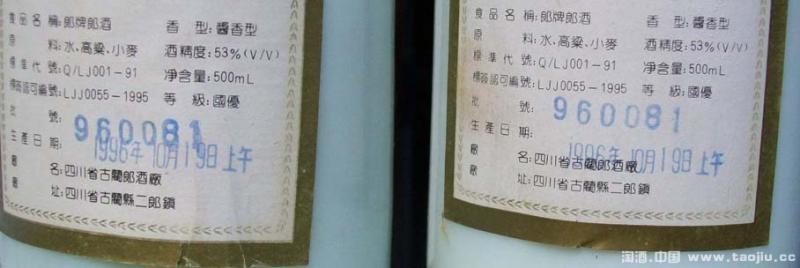 食品名稱:郎牌郎酒 香 型:醬香型
原 料:水、高粱、小麥 酒精度:53%(V/V)
標準代號:Q/LJ001-91 淨含量:500mL
標簽認可編號:LJJ0055-1995 等 級:國優
批 號:960081
生產日期:1996年10月19日上午
廠 名:四川省古藺郎酒廠
廠 址:四川省古藺縣二郎鎮
食品名稱:郎牌郎酒 香 型:醬香型
原 料:水、高粱、小麥 酒精度:53%(V/V)
標準代號:Q/LJ001-91 淨含量:500mL
標簽認可編號:LJJ0055-1995 等 級:國優
批 號:960081
生產日期:1996年10月19日上午
廠 名:四川省古藺郎酒廠
廠 址:四川省古藺縣二郎鎮
淘酒.中国 www.taojiu.cc